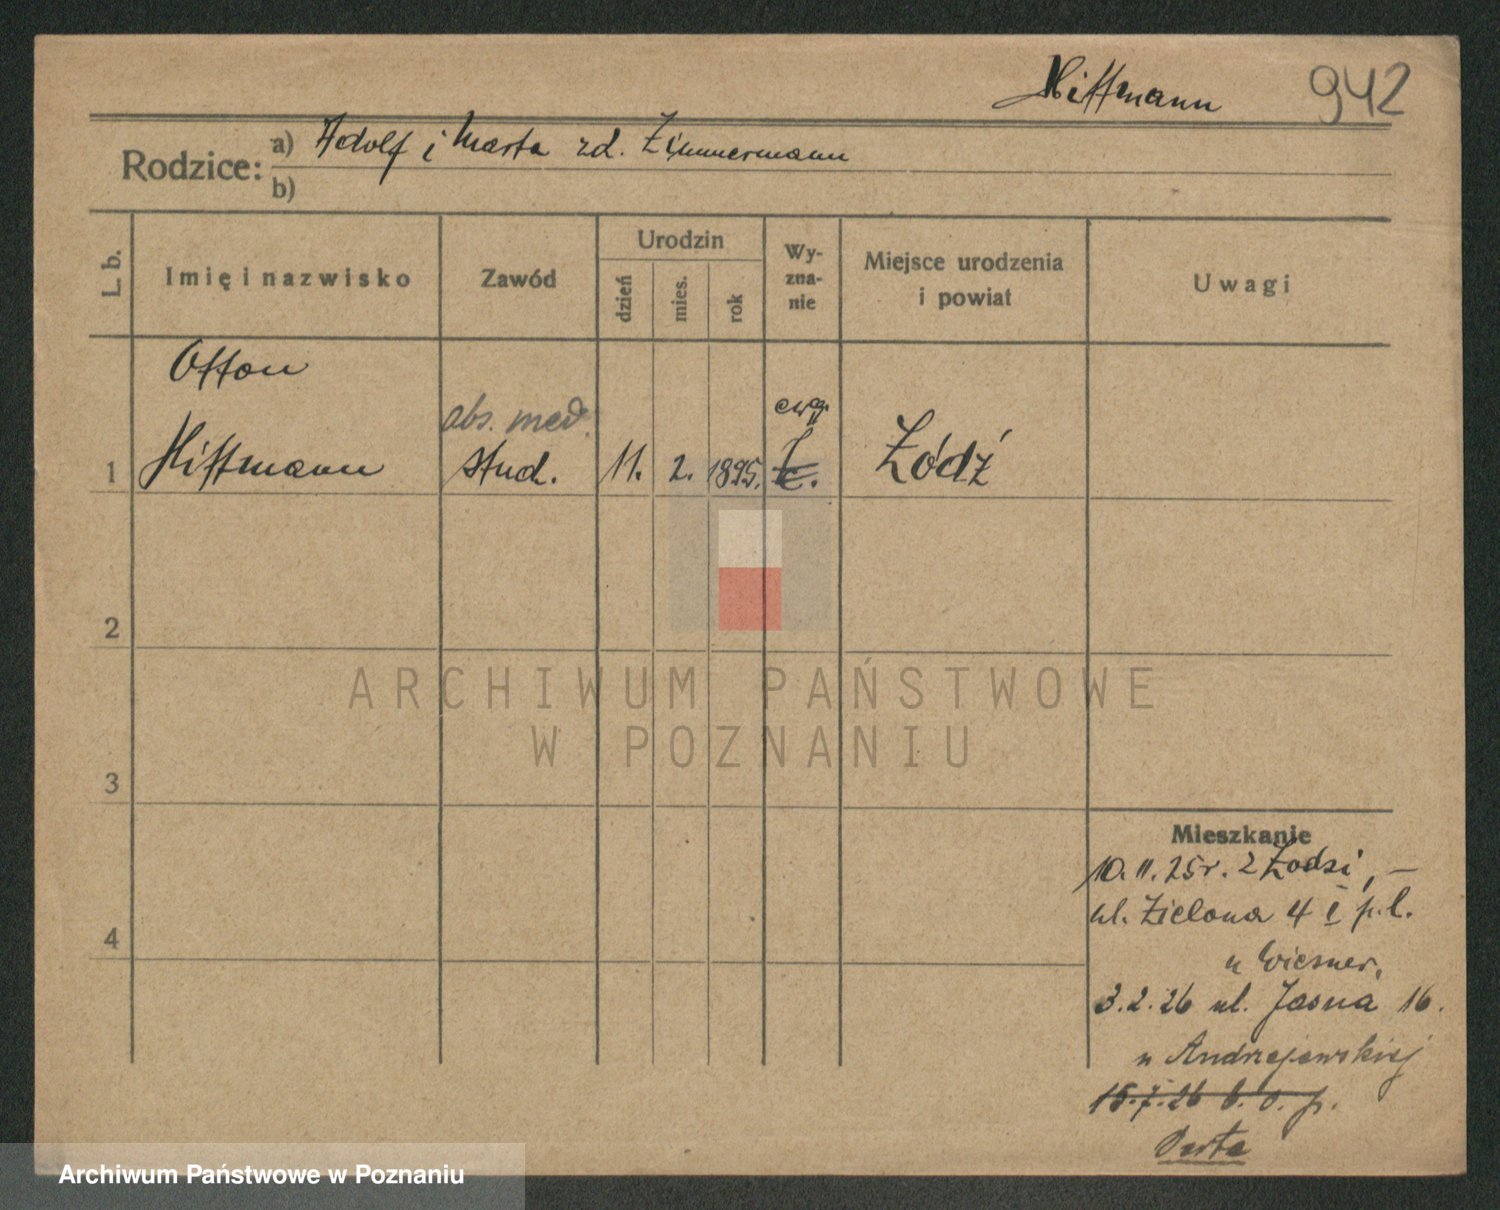 Hiffmann 942
Rodzice: a) Adolf i Marta zd. Zimmermann
b)
L. b.
Imię i nazwisko
Zawód
Urodzin
dzień
mies.
rok
Wy-
zna-
nie
Miejsce urodzenia
i powiat
Uwagi
Otton
abs. med.
ewg.
1 Hiffmann stud. 11. 2. 1895. Łódź
2
3
4
ARCHIWUM PAŃSTWOWE
W POZNANIU
Mieszkanie
10. 11. 25 r. z Łodzi, –
ul. Zielona 4 I p. l.
u Wiesner,
3. 2. 26 ul. Jasna 16.
u Andrzejewskiej
15. 7. 26 b. o. p.
Archiwum Państwowe w Poznaniu